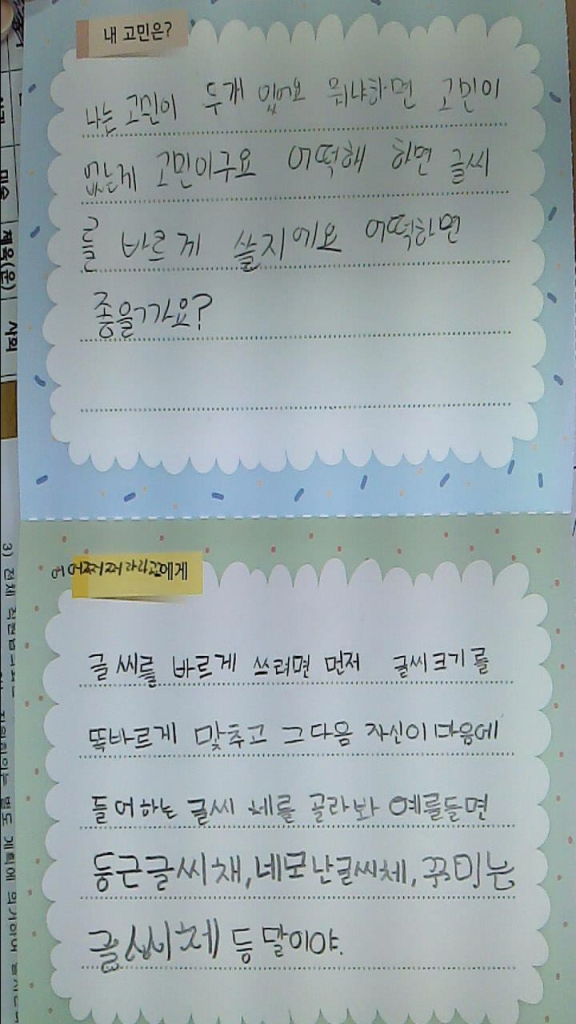 내 고민은?
나는 고민이 두개 있어요 뭐냐하면 고민이
없는게 고민이구요 어떡해 하면 글씨
를 바르게 쓸지에요 어떡하면
좋을가요?
에게
글씨를 바르게 쓰려면 먼저 글씨크기를
똑바르게 맞추고 그다음 자신이 마음에
들어하는 글씨 체를 골라봐 예를들면
둥근글씨채, 네모난글씨체, 꾸미는
글씨체 등 말이야.
체육(운)
사회